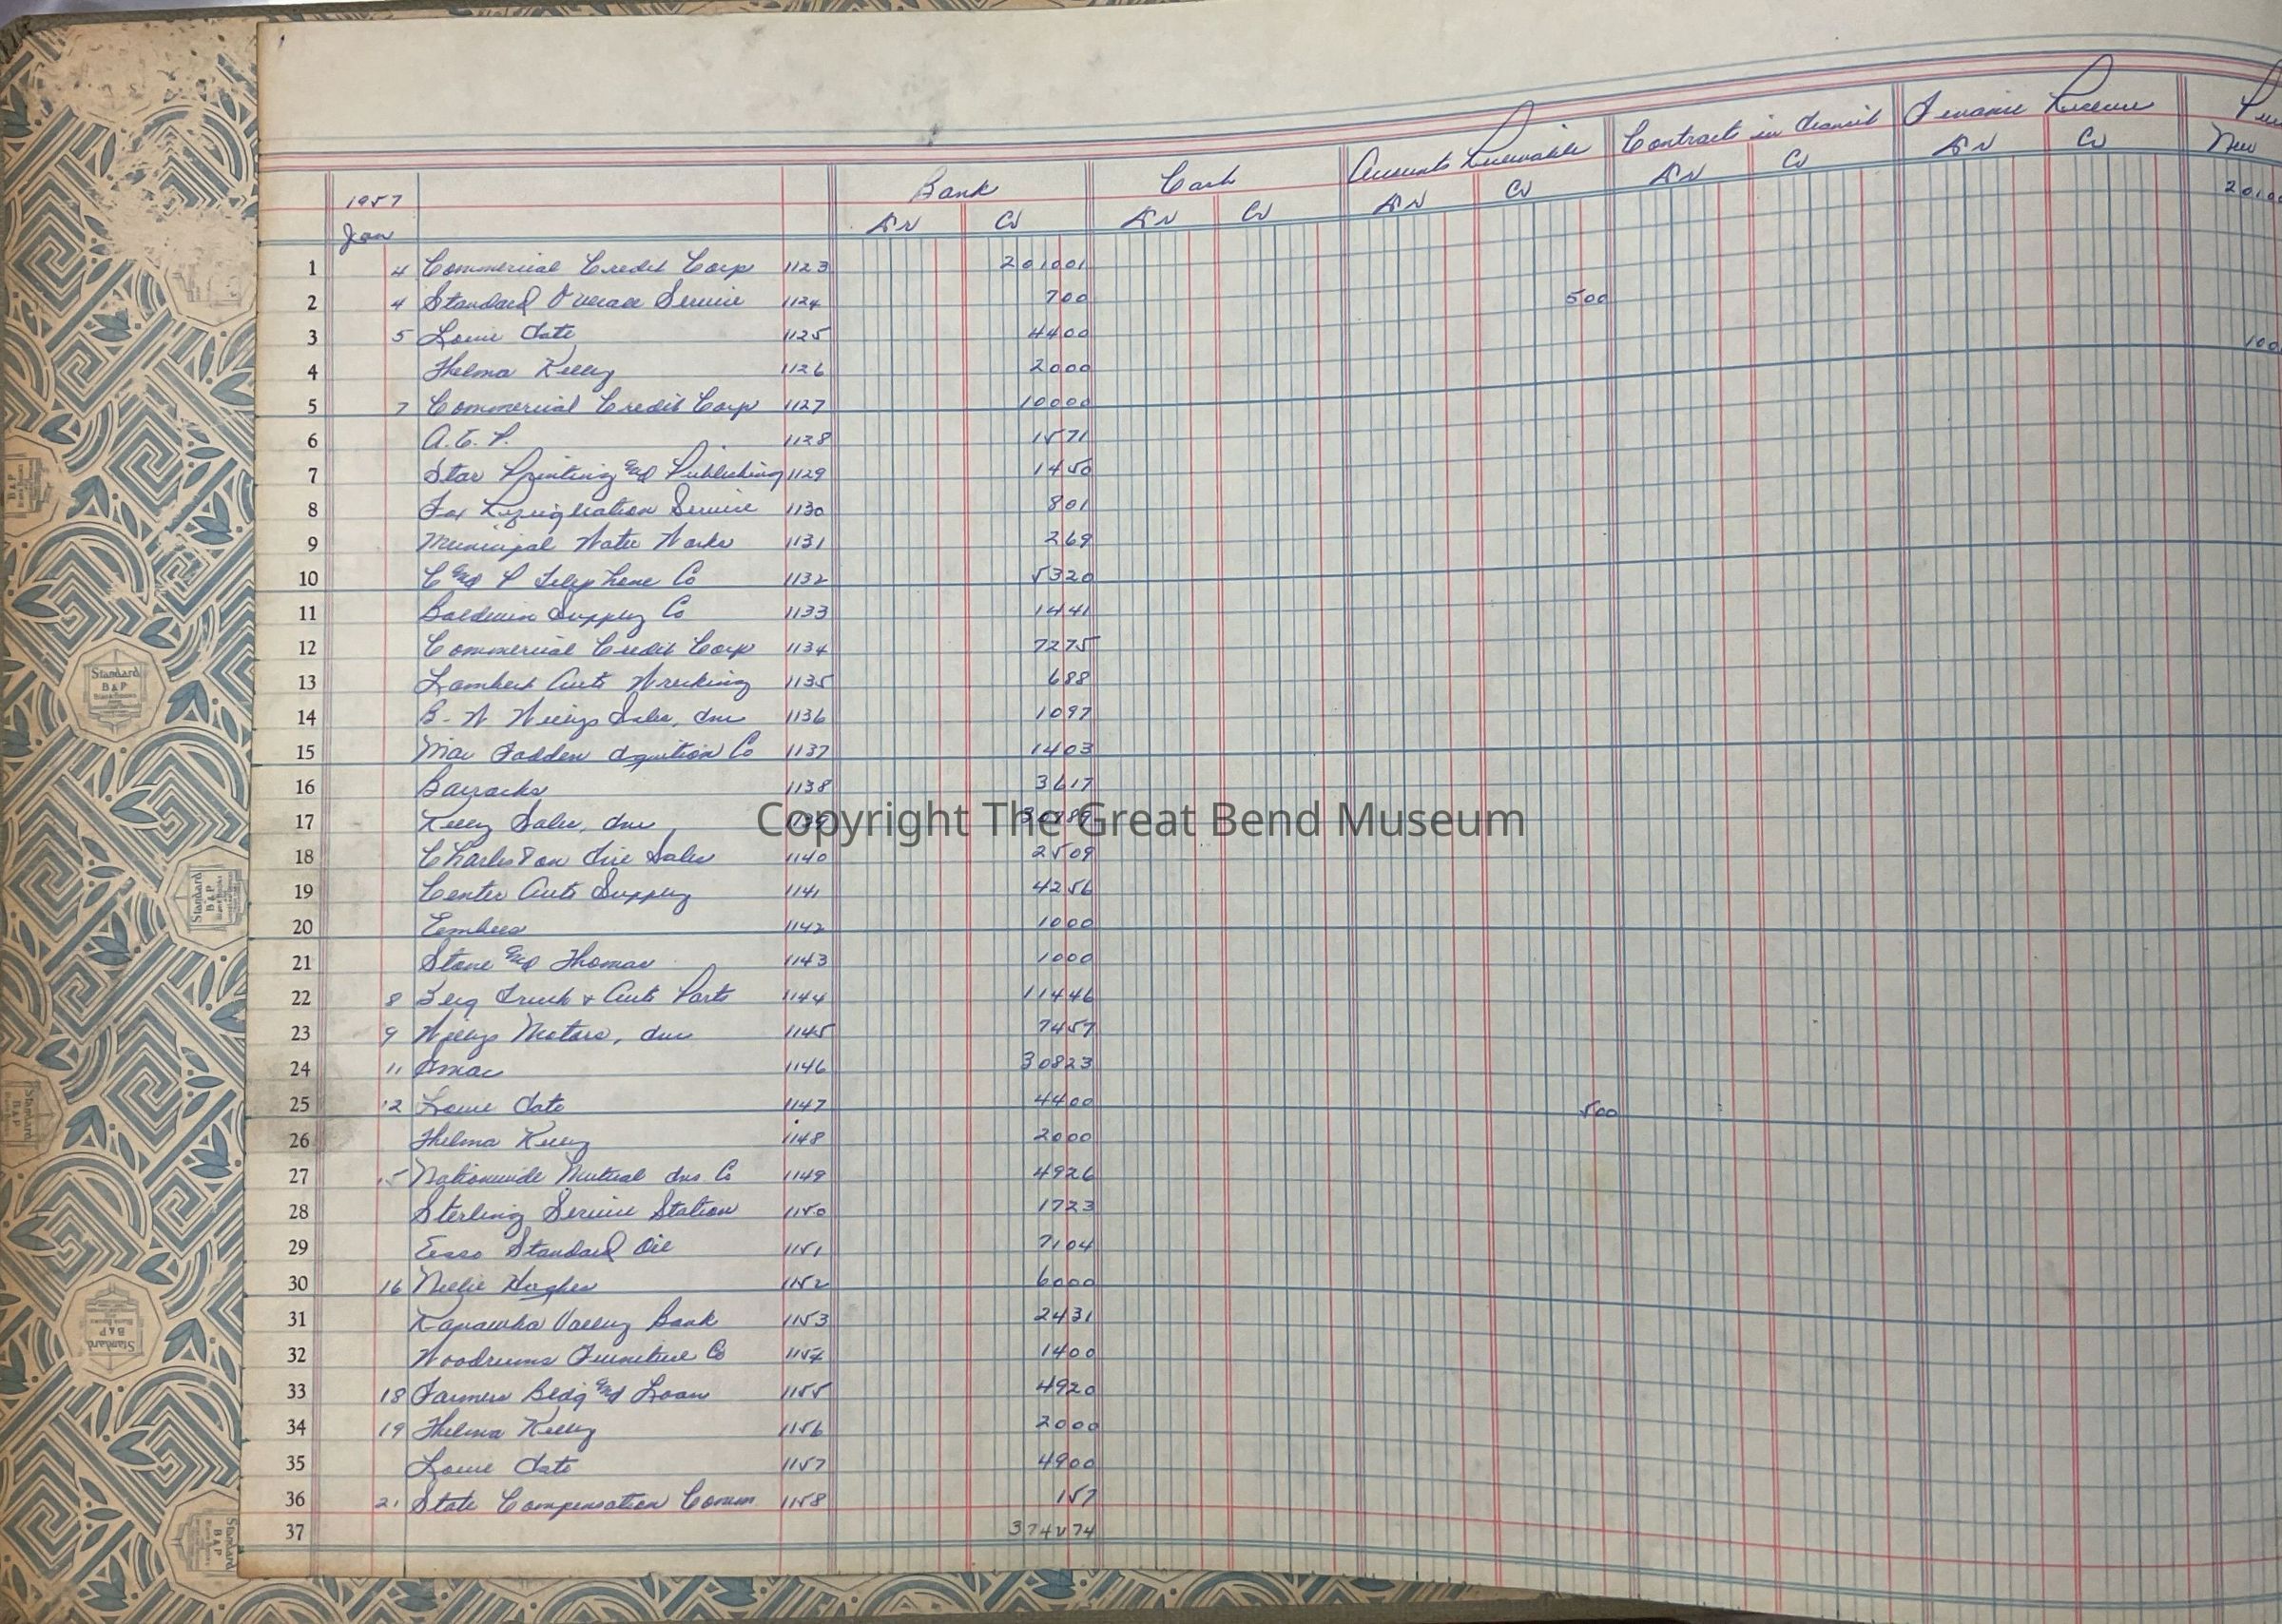 Bank Cash Accounts Receivable Contracts in Transit Finance Reserve
1957 Dr Cr Dr Cr Dr Cr Dr Cr Dr Cr New
Jan
1 4 Commercial Credit Corp 1123 201001
2 4 Standard Overall Service 1124 700 500
3 5 Louie Tate 1125 4400
4 Thelma Kelly 1126 2000
5 7 Commercial Credit Corp 1127 10000
6 1128 1571
7 Star Printing and Publishing 1129 1450
8 Fox Refrigeration Service 1130 801
9 Municipal Water Works 1131 269
10 C and P Telephone Co 1132 5320
11 Baldwin Supply Co 1133 1441
12 Commercial Credit Corp 1134 7275
13 Lambert Auto Wrecking 1135 688
14 B-W Willys Sales, Inc 1136 1097
15 Mac Fadden Ignition Co 1137 1403
16 Barracks 1138 3617
17 Kelly Sales, Inc 1139
18 Charleston Tire Sales 1140 2509
19 Center Auto Supply 1141 4256
20 Embees 1142 1000
21 Stone and Thomas 1143 1000
22 8 Truck & Auto Parts 1144 11446
23 9 Willys Motors, Inc 1145 7457
24 11 Gmac 1146 30823
25 12 Louie Tate 1147 4400 500
26 Thelma Kelly 1148 2000
27 15 Nationwide Mutual Ins. Co 1149 4926
28 Sterling Service Station 1150 1723
29 Esso Standard Oil 1151 7104
30 16 Nellie Hughes 1152 6000
31 Kanawha Valley Bank 1153 2431
32 Woodrums Furniture Co 1154 1400
33 18 Farmers Bldg and Loan 1155 4920
34 19 Thelma Kelly 1156 2000
35 Louie Tate 1157 4900
36 21 State Compensation Comm. 1158 157
37 374574
Copyright The Great Bend Museum
Standard
B&P